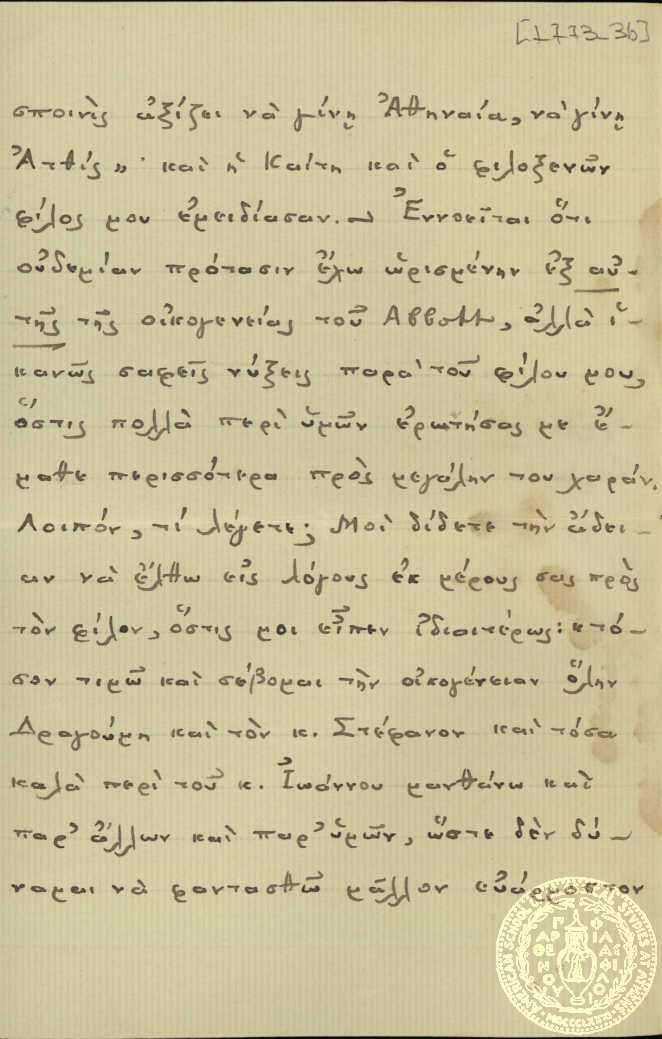 [1773_3b]
σποινὶς ἀξίζει νὰ γίνῃ Ἀθηναία, νὰ γίνῃ
Ἀτθίς„· καὶ ἡ Καίτη καὶ ὁ φιλοξενῶν
φίλος μου ἐμειδίασαν. — Ἐννοεῖται ὅτι
οὐδεμίαν πρότασιν ἔχω ὡρισμένην ἐξ αὐ-
τῆς τῆς οἰκογενείας τοῦ Abbott, ἀλλὰ ἱ-
κανῶς σαφεῖς νύξεις παρὰ τοῦ φίλου μου,
ὅστις πολλὰ περὶ ὑμῶν ἐρωτήσας με ἔ-
μαθε περισσότερα πρὸς μεγάλην του χαράν.
Λοιπόν, τί λέγετε; Μοὶ δίδετε τὴν ἄδει-
αν νὰ ἔλθω εἰς λόγους ἐκ μέρους σας πρὸς
τὸν φίλον, ὅστις μοι εἶπεν ἰδιαιτέρως: «τό-
σον τιμῶ καὶ σέβομαι τὴν οἰκογένειαν ὅλην
Δραγούμη καὶ τὸν κ. Στέφανον καὶ τόσα
καλὰ περὶ τοῦ κ. Ἰωάννου μανθάνω καὶ
παρ' ἄλλων καὶ παρ' ὑμῶν, ὥστε δὲν δύ-
ναμαι νὰ φαντασθῶ μᾶλλον εὐάρμοστον
AMERICAN SCHOOL OF CLASSICAL STUDIES AT ATHENS
MDCCCLXXXI